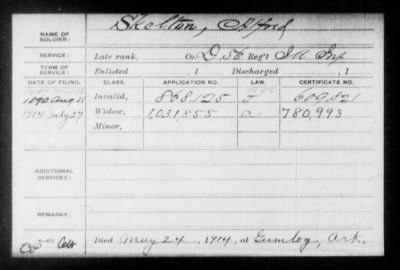 NAME OF SOLDIER: Skelton, Alfred
SERVICE: Late rank, Co. D, 56 Reg't Ill Inf
TERM OF SERVICE: Enlisted 1 Discharged , 1
DATE OF FILING. CLASS. APPLICATION NO. CERTIFICATE NO.
1890 Aug 11 Invalid, 868125 609,821
1914 July 27 Widow, 1,031,855 780,993
Minor,
ADDITIONAL SERVICES:
REMARKS:
3-477
Died May 24, 1914, at Gumlog, Ark.